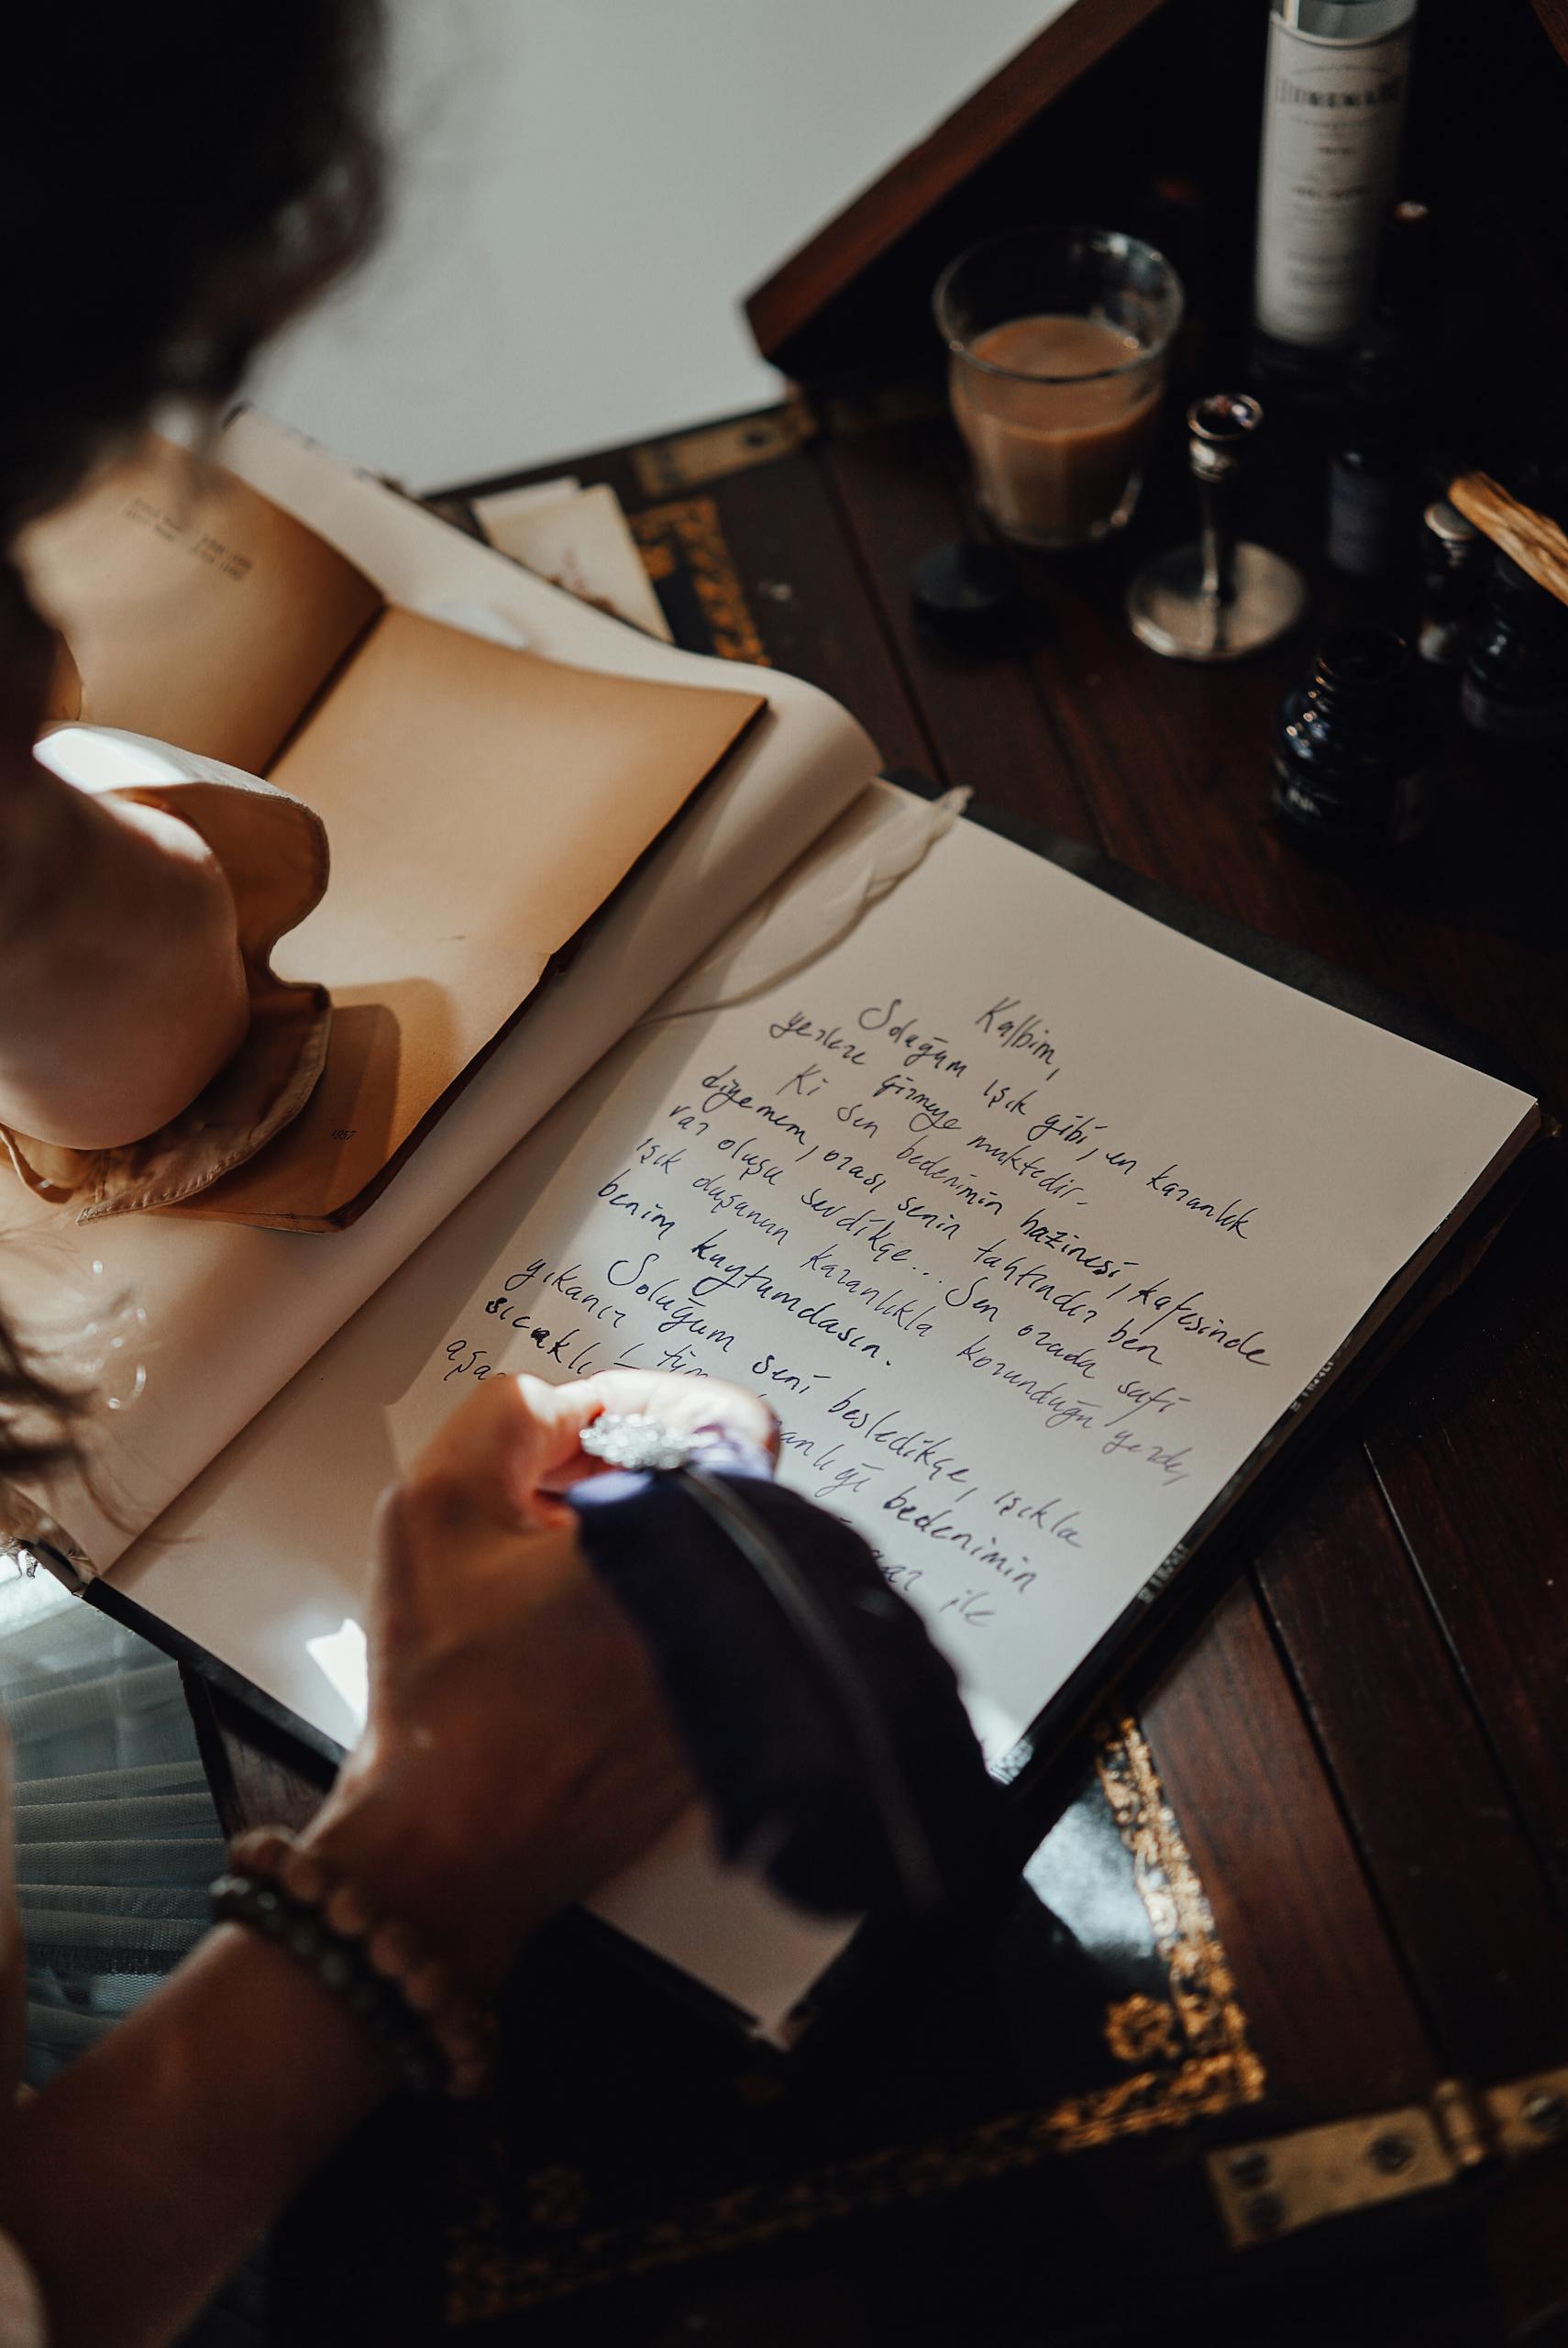 Kalbim,
Soluğum ışık gibi, en karanlık
yerlere girmeye muktedir.
Ki sen bedenimin hazinesi, kafesinde
diyemem, orası senin tahtındır ben
var oluşu sevdikçe... Sen orada safi
ışık duşunun karanlıkla korunduğu yerde,
benim kuytumdasın.
Soluğum seni besledikçe, ışıkla
yıkanır tüm bedenimin
ile
1957